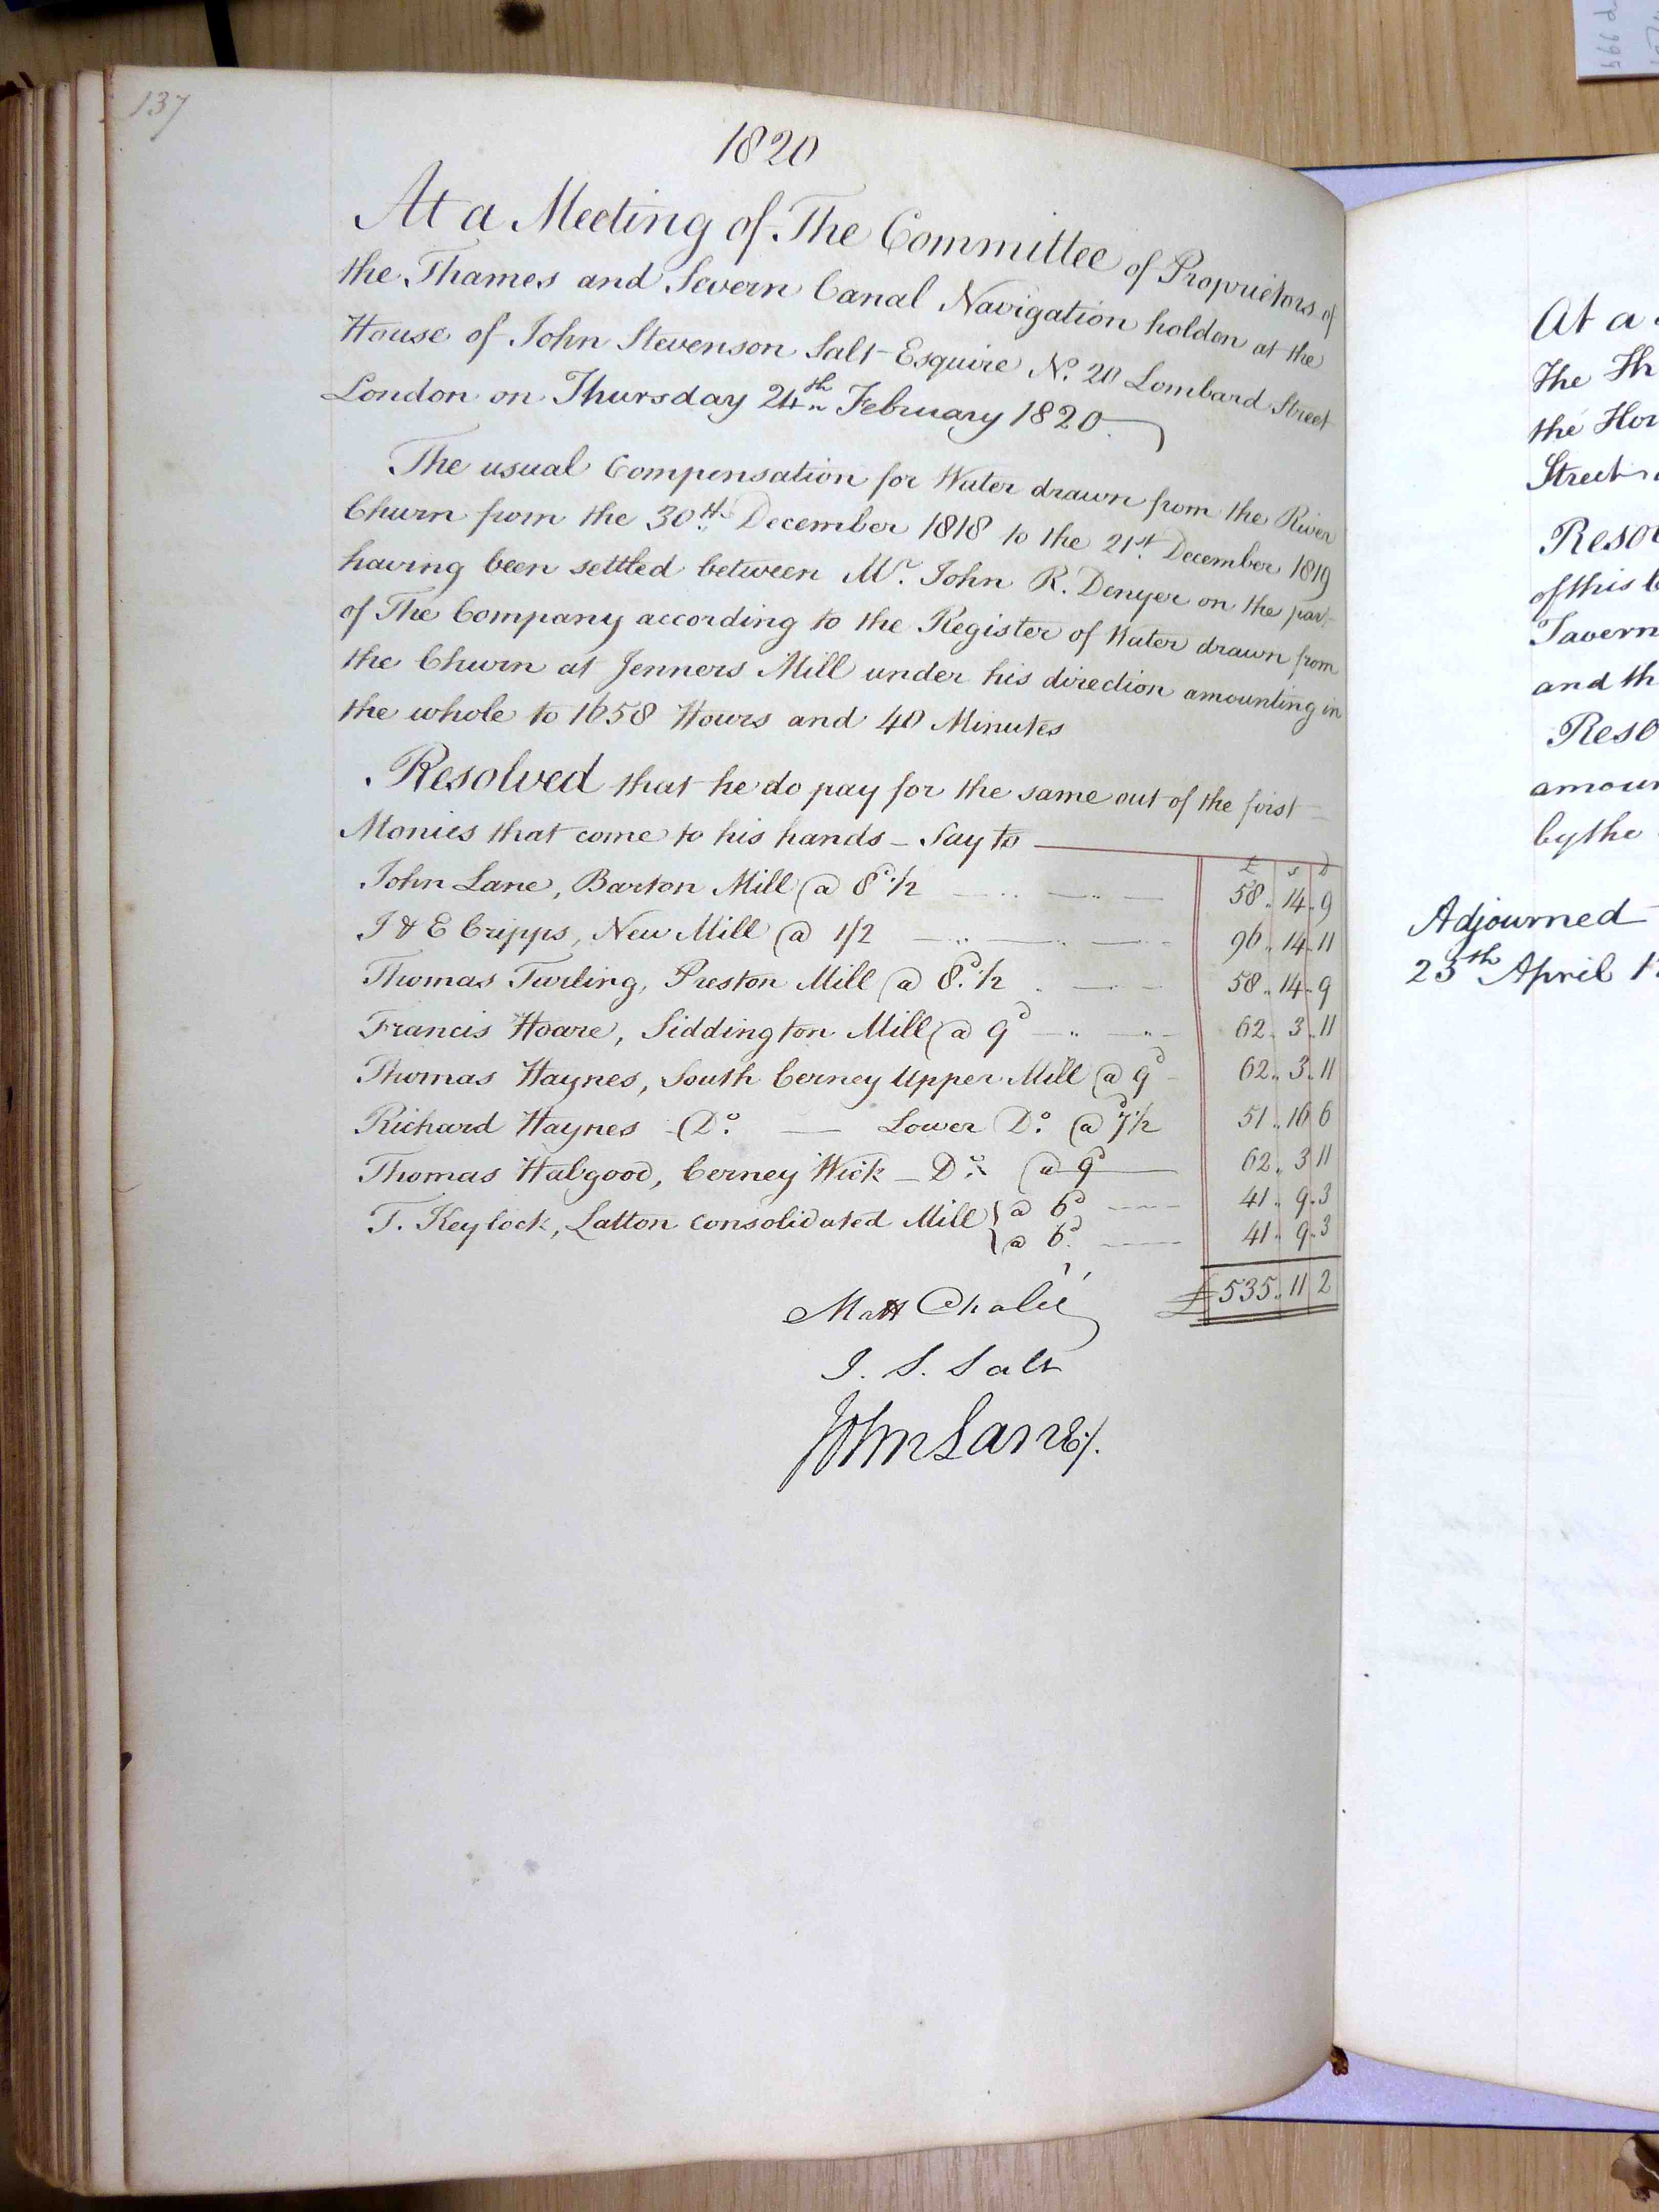 137
1820
At a Meeting of The Committee of Proprietors of
the Thames and Severn Canal Navigation holden at the
House of John Stevenson Salt Esquire No. 20 Lombard Street
London on Thursday 24th February 1820
The usual Compensation for Water drawn from the River
Churn from the 30th December 1818 to the 21st December 1819
having been settled between Mr. John R. Denyer on the part
of The Company according to the Register of Water drawn from
the Churn at Jenners Mill under his direction amounting in
the whole to 1658 Hours and 40 Minutes
Resolved that he do pay for the same out of the first
Monies that come to his hands - Say to
£ s D
John Lane, Barton Mill @ 8d 1/2 58 .. 14 .. 9
I & E Cripps, New Mill @ 1/2 96 .. 14 .. 11
Thomas Turling, Preston Mill @ 8d. 1/2 58 .. 14 .. 9
Francis Hoare, Siddington Mill @ 9d 62 .. 3 .. 11
Thomas Haynes, South Cerney Upper Mill @ 9d 62 .. 3 .. 11
Richard Haynes Do. Lower Do. @ 7d 1/2 51 .. 16 6
Thomas Habgood, Cerney Wick - Do. @ 9d 62 .. 3 11
T. Keylock, Latton Consolidated Mill { @ 6d 41 .. 9 .. 3
{ @ 6d. 41 .. 9 .. 3
£ 535 .. 11 2
Matt Chalié
J. S. Salt
John Lane
At a
The Th
the Hou
Street
Resol
of this C
Tavern
and th
Reso
amoun
by the
Adjourned
25th April 1